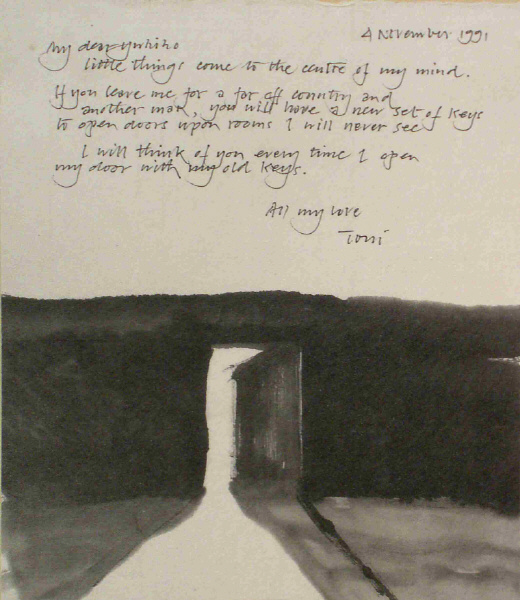 4 November 1991
My dear Yukiko
little things come to the centre of my mind.
If you leave me for a far off country and
another man, you will have a new set of keys
to open doors upon rooms I will never see
I will think of you every time I open
my door with my old keys.
All my love
Toni